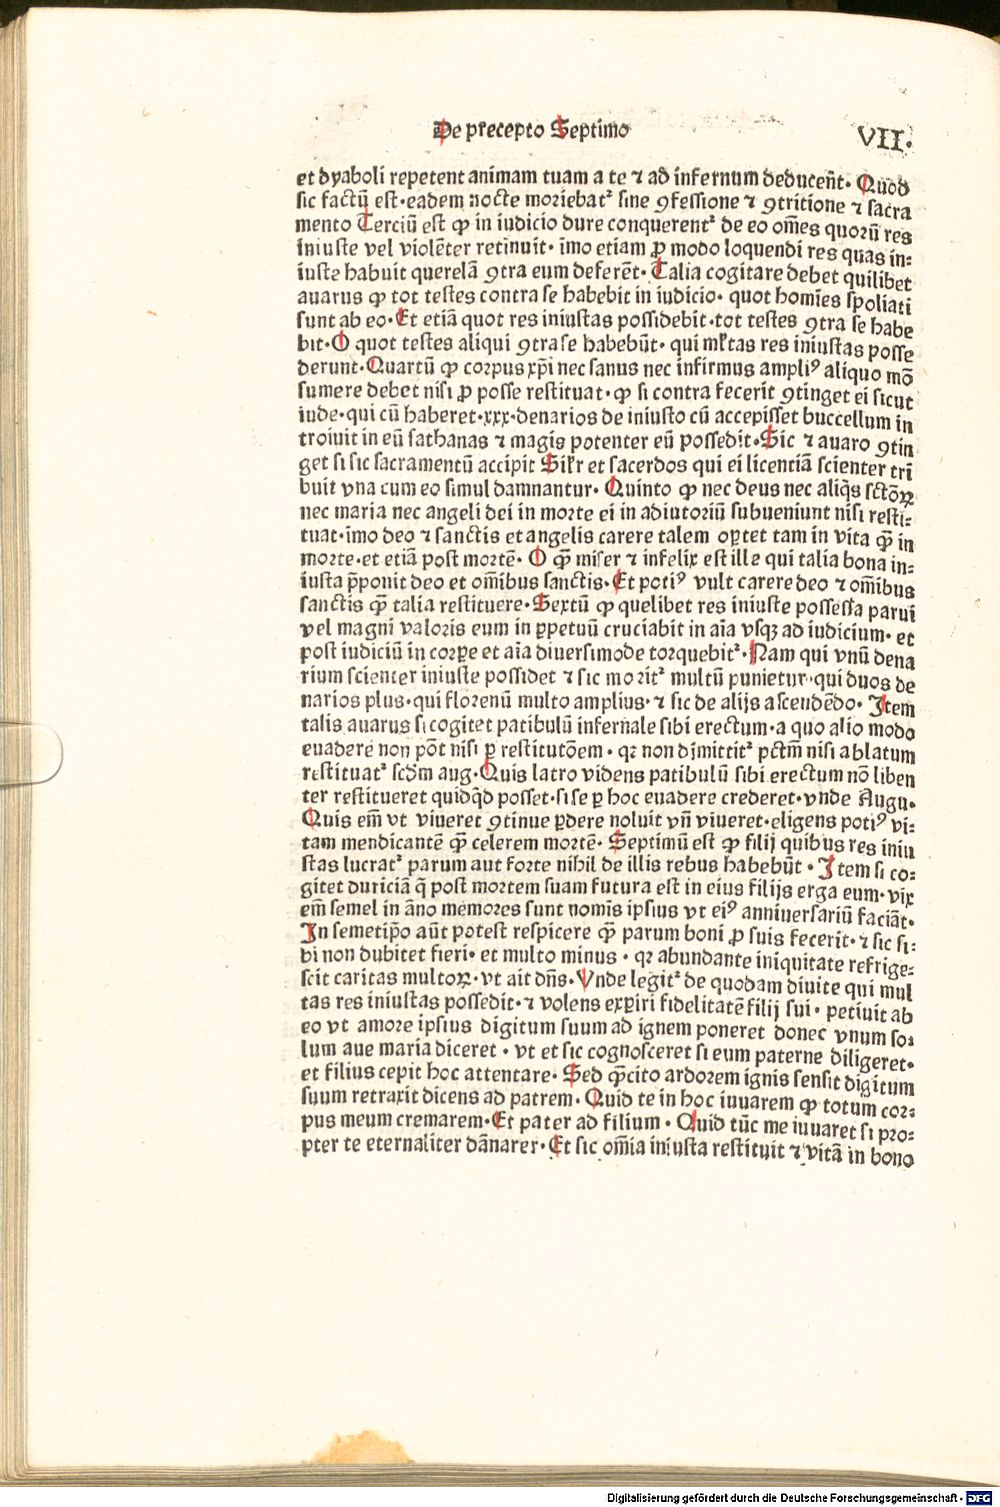 De precepto Septimo
VII.
et dyaboli repetent animam tuam a te ⁊ ad infernum deducēt. Quod
sic factū est. eadem nocte moriebatᷣ sine ꝯfessione ⁊ ꝯtritione ⁊ sacra
mento Terciū est ꝙ in iudicio dure conquerentᷣ de eo om̄es quorū res
iniuste vel violēter retinuit. īmo etiam ꝓ modo loquendi res quas in⸗
iuste habuit querelā ꝯtra eum deferēt. Talia cogitare debet quilibet
auarus ꝙ tot testes contra se habebit in iudicio. quot homīes spoliati
sunt ab eo. Et etiā quot res iniustas possidebit. tot testes ꝯtra se habe
bit. O quot testes aliqui ꝯtra se habebūt. qui ml̓tas res iniustas posse
derunt. Quartū ꝙ corpus xp̄i nec sanus nec infirmus ampliꝰ aliquo mō
sumere debet nisi ꝓ posse restituat. ꝙ si contra fecerit ꝯtinget ei sicut
iude. qui cū haberet .xxx. denarios de iniusto cū accepisset buccellum in
troiuit in eū sathanas ⁊ magis potenter eū possedit. Sic ⁊ auaro ꝯtin
get si sic sacramentū accipit Sil̓r et sacerdos qui ei licentiā scienter tri
buit vna cum eo simul damnantur. Quinto ꝙ nec deus nec aliq̄s sctōꝝ
nec maria nec angeli dei in morte ei in adiutoriū subueniunt nisi resti⸗
tuat. imo deo ⁊ sanctis et angelis carere talem oꝑtet tam in vita ꝙ̄ in
morte. et etiā post mortē. O ꝙ̄ miser ⁊ infelix est ille qui talia bona in⸗
iusta p̄ponit deo et om̄ibus sanctis. Et potiꝰ vult carere deo ⁊ om̄ibus
sanctis ꝙ̄ talia restituere. Sextū ꝙ quelibet res iniuste possessa parui
vel magni valoris eum in ꝑpetuū cruciabit in aīa vsqꝫ ad iudicium. et
post iudiciū in corpe et aīa diuersimode torquebitᷣ. Nam qui vnū dena
rium scienter iniuste possidet ⁊ sic moritᷣ multū punietur. qui duos de
narios plus. qui florenū multo amplius. ⁊ sic de alijs ascendēdo. Item
talis auarus si cogitet patibulū infernale sibi erectum. a quo alio modo
euadere non pōt nisi ꝑ restitutōem. qꝛ non dimittitᷣ pctm̄ nisi ablatum
restituatᷣ scd̄m aug. Quis latro videns patibulū sibi erectum nō liben
ter restitueret quidq̄d posset. si se ꝑ hoc euadere crederet. vnde Augu.
Quis em̄ vt viueret ꝯtinue ꝑdere noluit vn̄ viueret. eligens potiꝰ vi⸗
tam mendicantē ꝙ̄ celerem mortē. Septimū est ꝙ filij quibus res iniu
stas lucratᷣ parum aut forte nihil de illis rebus habebūt. Item si co⸗
gitet duriciā q̄ post mortem suam futura est in eius filijs erga eum. vix
em̄ semel in āno memores sunt nomīs ipsius vt eiꝰ anniuersariū faciāt.
In semetip̄o aūt potest respicere ꝙ̄ parum boni ꝓ suis fecerit. ⁊ sic si⸗
bi non dubitet fieri. et multo minus. qꝛ abundante iniquitate refrige⸗
scit caritas multoꝝ. vt ait dn̄s. Vnde legitᷣ de quodam diuite qui mul
tas res iniustas possedit. ⁊ volens exꝑiri fidelitatē filij sui. petiuit ab
eo vt amore ipsius digitum suum ad ignem poneret donec vnum so⸗
lum aue maria diceret. vt et sic cognosceret si eum paterne diligeret.
et filius cepit hoc attentare. Sed ꝙ̄cito ardorem ignis sensit digitum
suum retraxit dicens ad patrem. Quid te in hoc iuuarem ꝙ totum cor⸗
pus meum cremarem. Et pater ad filium. Quid tūc me iuuaret si pro⸗
pter te eternaliter dānarer. Et sic om̄ia iniusta restituit ⁊ vitā in bono
Digitalisierung gefördert durch die Deutsche Forschungsgemeinschaft - DFG